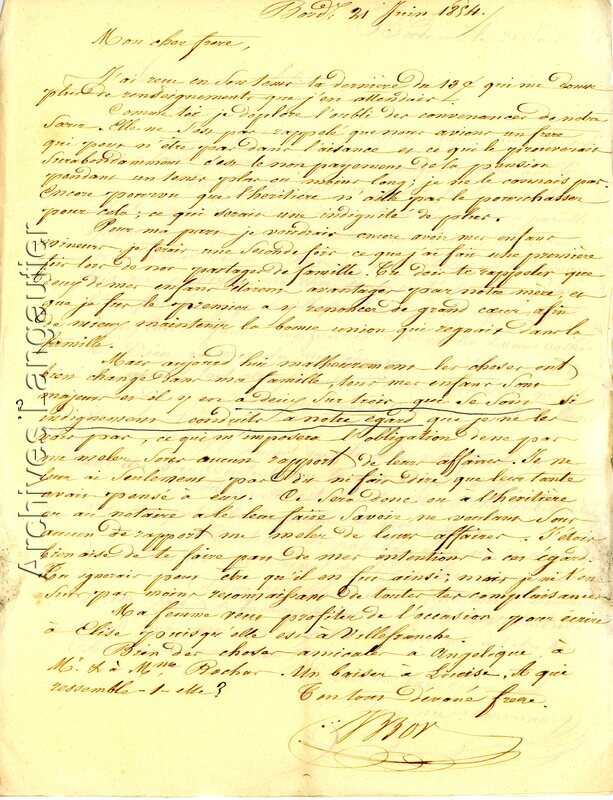 Bord.x 21 Juin 1854.
Mon cher frere,
J'ai reçu en son tems ta dernière du 13 ct qui me donne
plus de renseignements que j'en attendais.
Comme toi, je déplore l'oubli des convenances de notre
Soeur. Elle ne s'est pas rappelé que nous avions un frere
qui pour n'être pas dans l'aisance et ce qui le prouverait
Surabondamment c'est le non payement de la pension
pendant un tems plus ou moins long; je ne le connais pas.
Encore pourvu que l'héritière n'aille pas le pourchasser
pour cela; ce qui serait une indignité de plus.
Pour ma part je voudrais encore avoir mes enfans
mineurs, je ferais une seconde fois ce que j'ai fait une première
fois lors de nos partages de famille. Tu dois te rappeler que
deux de mes enfans étaient avantagés par notre mère, et
que je fus le premier a y renoncer de grand coeur afin
de mieux maintenir la bonne union qui regnait dans la
famille.
Mais aujourd'hui malheureusement les choses ont
bien changé dans ma famille, tous mes enfans sont
majeurs et il y en a deux sur trois qui se sont si
indignement conduits a notre égard que je ne les
vois pas, ce qui m'imposera l'obligation de ne pas
me meler sous aucun rapport de leurs affaires. Je ne
leur ai seulement pas dit ni fait dire que leur tante
avait pensé à eux. Ce sera donc ou a l'héritière
ou au notaire a le leur faire savoir ne voulant sous
aucun de rapport me meler de leurs affaires. J'étais
bienaise de te faire part de mes intentions à cet égard.
Tu ignorais peut etre qu'il en fut ainsi; mais je n'en
suis pas moins reconnaissant de toutes tes complaisances
Ma femme veut profiter de l'occasion pour écrire
à Elise puisqu'elle est a Villefranche
Bien des choses amicales à Angélique, à
Mr. & à Mme Rochas. Un baiser à Louise, A qui
ressemble-t-elle?
Ton tout dévoué frere.
Archives Langautier